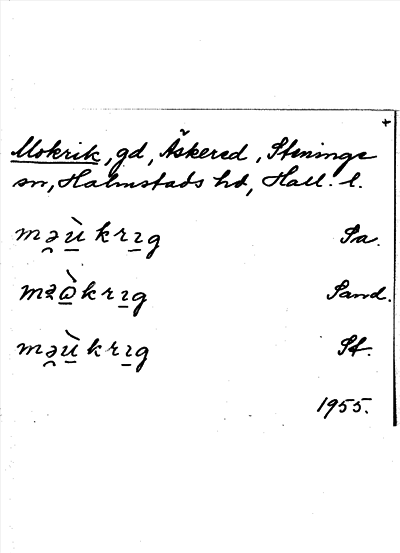 Mokrik, gd, Äskered, Steninge
sn, Halmstads hd, Hall. l.
mə̯ù̱krı̱g Sa.
Sand.
mə̯ù̱krı̱g St.
1955.